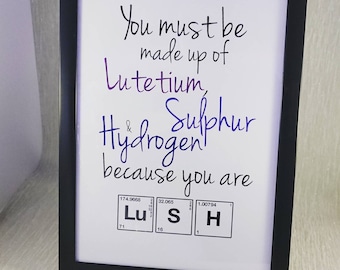 You must be
made up of
Lutetium,
Sulphur
& Hydrogen
because you are
174.9668 32.065 1.00794
Lu S H
71 16 1